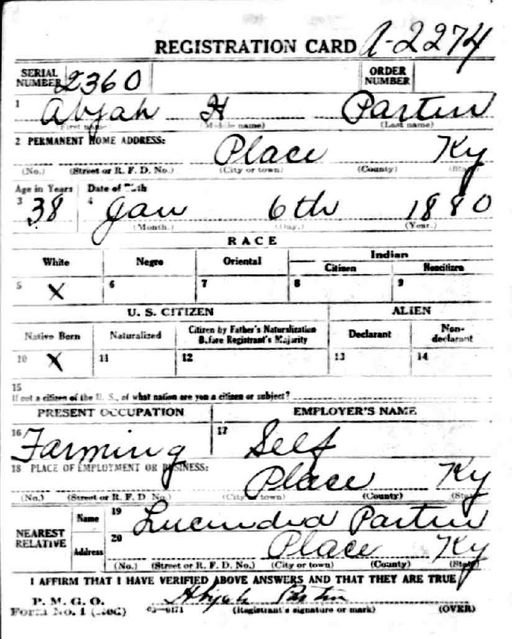 REGISTRATION CARD A-2274
SERIAL NUMBER 2360 ORDER NUMBER
1 Abijah H Partin
(First name) (Middle name) (Last name)
2 PERMANENT HOME ADDRESS:
Place Ky
(No.) (Street or R. F. D. No.) (City or town) (County) (State)
Age in Years Date of Birth
3 38 4 Jan 6th 1880
(Month.) (Day.) (Year.)
RACE
White Negro Oriental Indian
Citizen Noncitizen
5 X 6 7 8 9
U. S. CITIZEN ALIEN
Native Born Naturalized Citizen by Father's Naturalization Before Registrant's Majority Declarant Non-declarant
10 X 11 12 13 14
15
If not a citizen of the U. S., of what nation are you a citizen or subject?
PRESENT OCCUPATION EMPLOYER'S NAME
16 Farming 17 Self
18 PLACE OF EMPLOYMENT OR BUSINESS:
Place Ky
(No.) (Street or R. F. D. No.) (City or town) (County) (State)
NEAREST RELATIVE Name 19 Lucindia Partin
Address 20 Place Ky
(No.) (Street or R. F. D. No.) (City or town) (County) (State)
I AFFIRM THAT I HAVE VERIFIED ABOVE ANSWERS AND THAT THEY ARE TRUE
P. M. G. O. Abijah Partin
Form No. 1 (Red) 03-6171 (Registrant's signature or mark) (OVER)